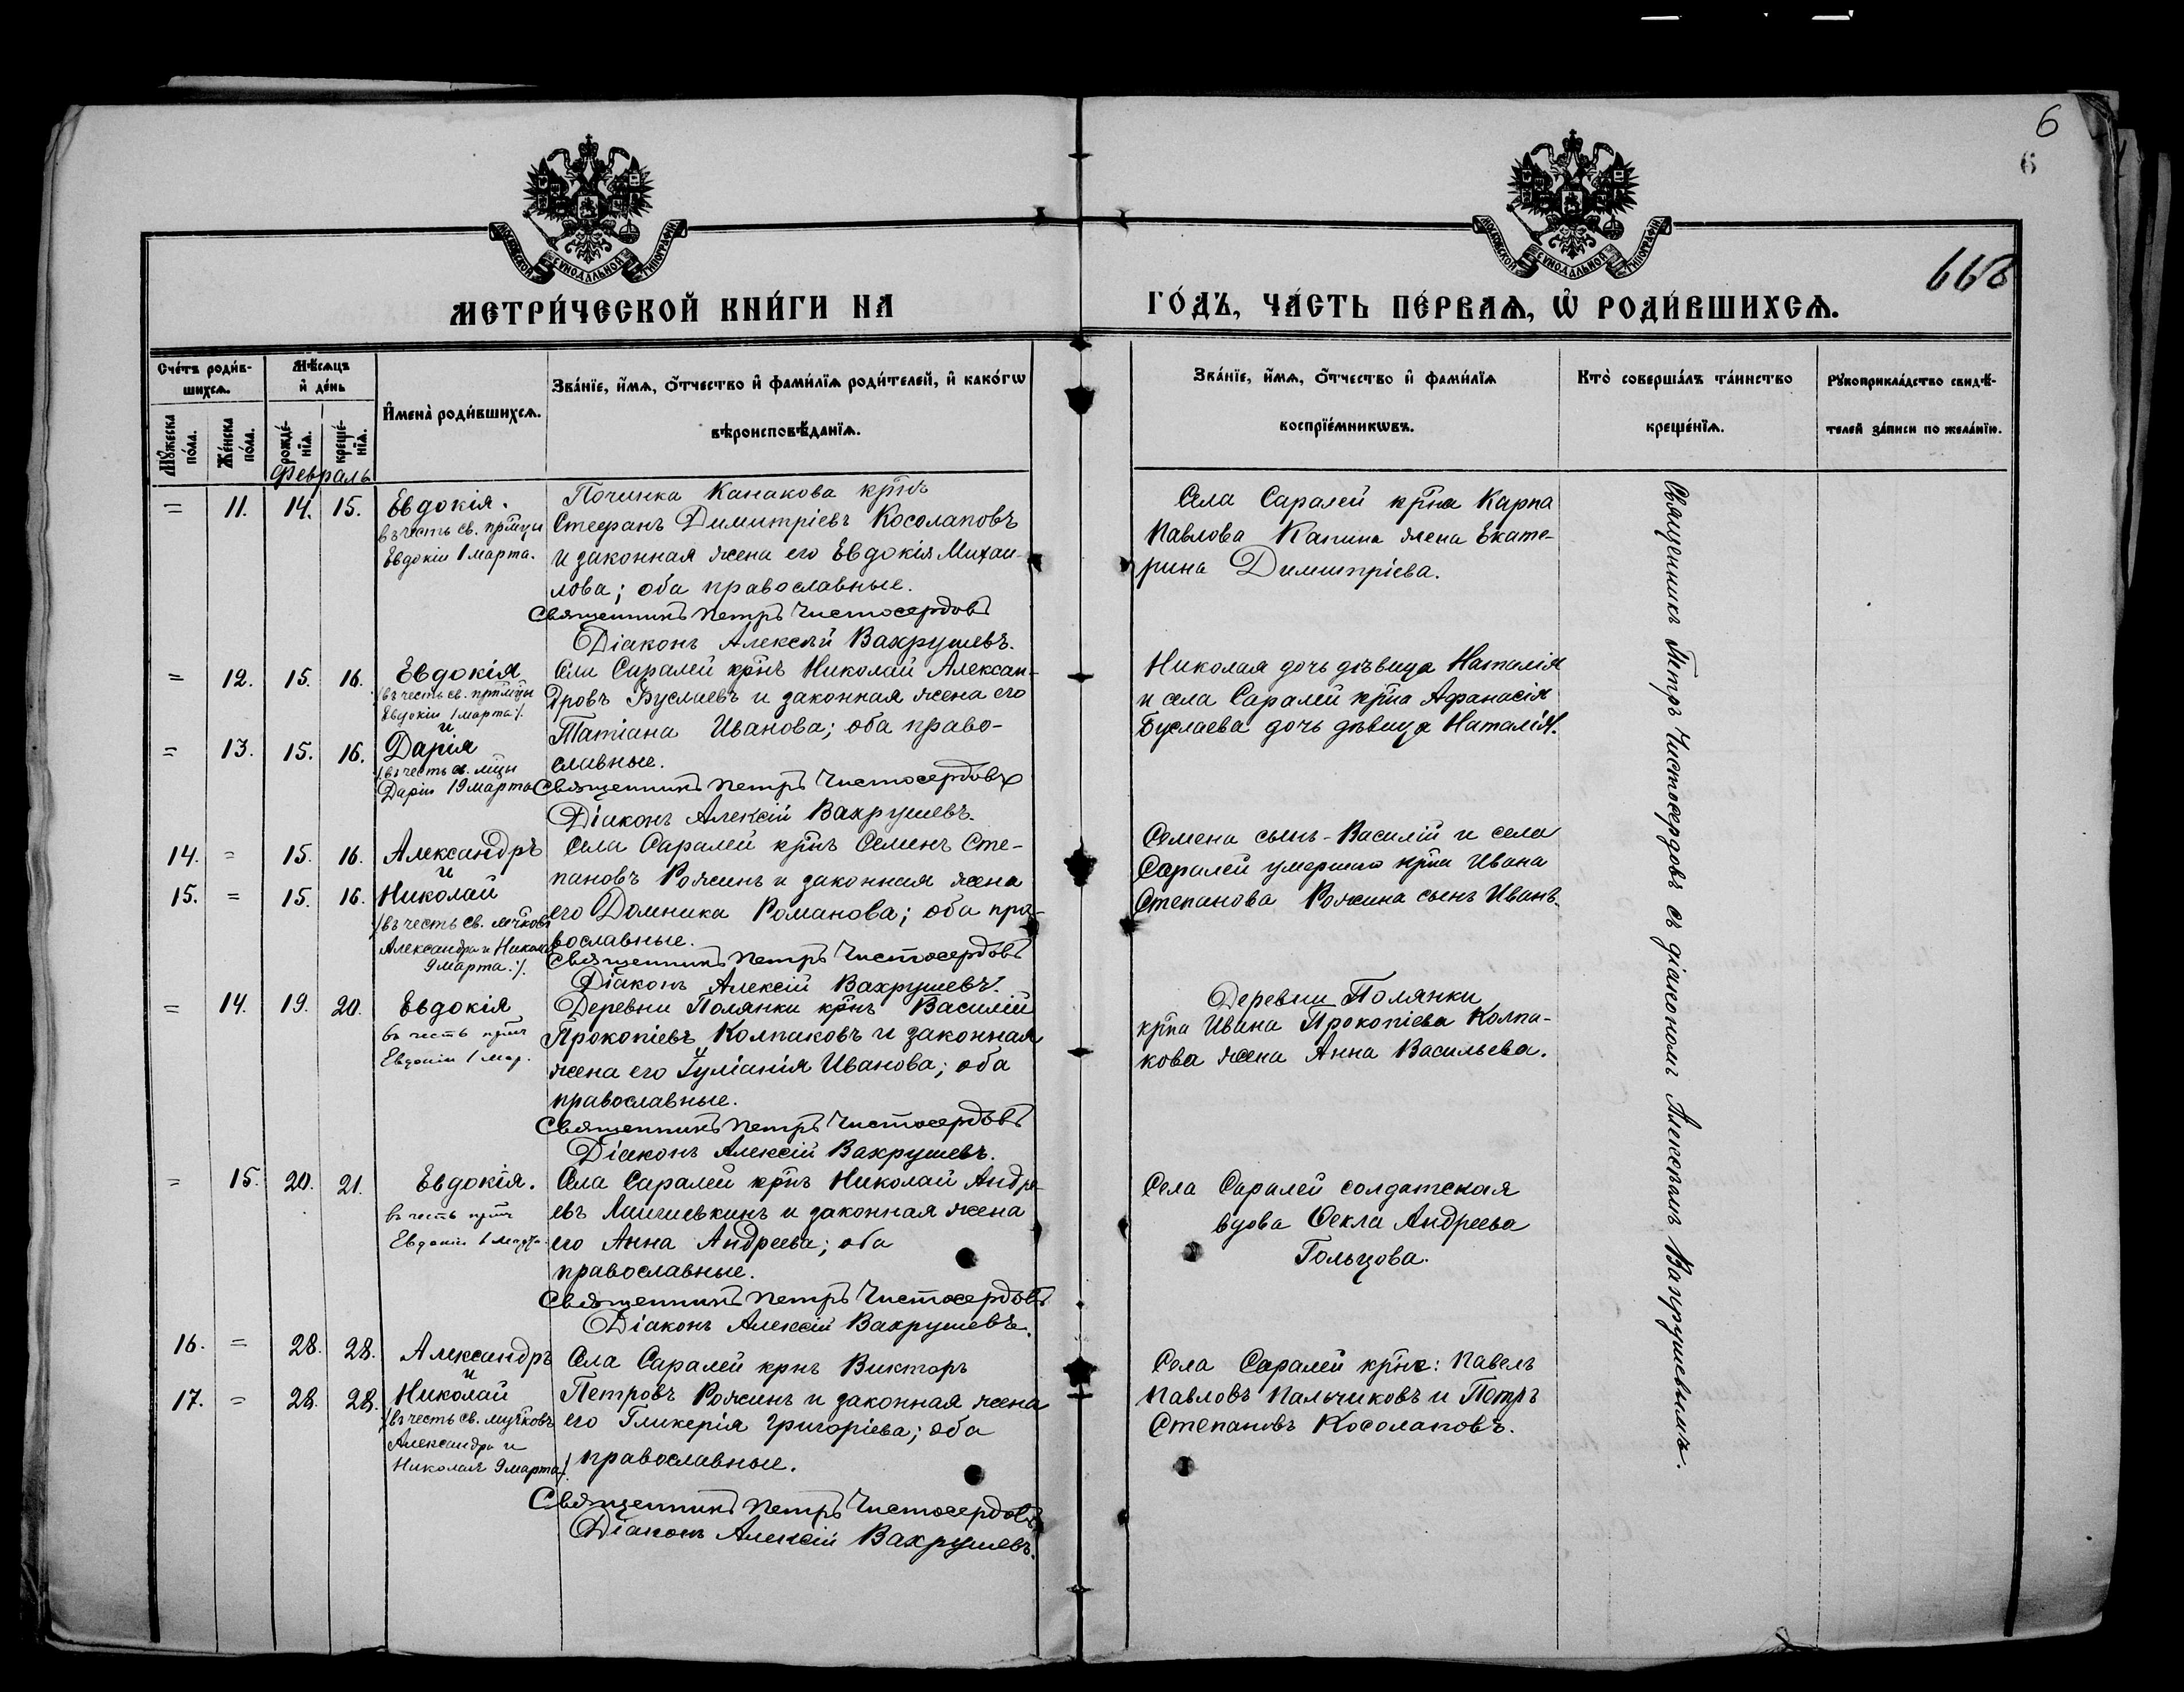 6
6
МОСКОВСКОЙ СѴНОДАЛЬНОЙ ТИПОГРАФІИ
МОСКОВСКОЙ СѴНОДАЛЬНОЙ ТИПОГРАФІИ
668
МЕТРИ́ЧЕСКОЙ КНИ́ГИ НА
ГО́ДЪ, ЧА́СТЬ ПЕ́РВАѦ, Ѡ҆ РОДИ́ВШИХСѦ.
Сче́тъ роди́в-
шихсѧ.
Мꙋ́жеска по́ла.
Же́нска по́ла.
Мѣ́сѧцъ
и҆ де́нь
рожде́-нїѧ.
креще́-нїѧ.
И҆мена̀ роди́вшихсѧ.
Зва́нїе, и҆́мѧ, ѻ҆́тчество и҆ фами́лїѧ роди́телей, и҆ како́гѡ
вѣроисповѣ́данїѧ.
Зва́нїе, и҆́мѧ, ѻ҆́тчество и҆ фами́лїѧ
воспрїе́мникѡвъ.
Кто̀ соверша́лъ та́инство
креще́нїѧ.
Рꙋкоприкла́дство свидѣ́-
телей за́писи по жела́нїю.
Февраль
= 11. 14. 15. Евдокія.
въ честь св. прмци
Евдокіи 1 марта.
Починка Канакова крнъ
Стефанъ Димитріевъ Косолаповъ
и законная жена его Евдокія Михаи-
лова; оба православные.
Священникъ Петръ Чистосердовъ
Діаконъ Алексѣй Вахрушевъ.
Села Саралей крна Карпа
Павлова Капина жена Екате-
рина Димитріева.
= 12. 15. 16. Евдокія
/:въ честь св. прпмцы
Евдокіи 1 марта:/.
и
= 13. 15. 16. Дарія
/:въ честь св. мцы
Даріи 19 марта
Села Саралей крнъ Николай Алексан-
дровъ Буслаевъ и законная жена его
Татіана Иванова; оба право-
славные.
Священникъ Петръ Чистосердовъ
Діаконъ Алексій Вахрушевъ.
Николая дочь дѣвица Наталія
и села Саралей крна Афанасія
Буслаева дочь дѣвица Наталія.
14. = 15. 16. Александръ
и
15. = 15. 16. Николай
/:въ честь св. мчковъ
Александра и Николая
9 марта:/.
Села Саралей крнъ Семенъ Сте-
пановъ Рожинъ и законная жена
его Домника Романова; оба пра-
вославные.
Священникъ Петръ Чистосердовъ
Діаконъ Алексій Вахрушевъ.
Семена сынъ-Василій и села
Саралей умершаго крна Ивана
Степанова Рожина сынъ Иванъ.
= 14. 19. 20. Евдокія
въ честь
Евдокіи 1 мар.
Деревни Полянки крнъ Василій
Прокопіевъ Колпаковъ и законная
жена его Іуліанія Иванова; оба
православные.
Священникъ Петръ Чистосердовъ
Діаконъ Алексій Вахрушевъ.
Деревни Полянки
крна Ивана Прокопіева Колпа-
кова жена Анна Васильева.
= 15. 20. 21. Евдокія.
въ честь
Евдокіи 1 марта.
Села Саралей крнъ Николай Андре-
евъ и законная жена
его Анна Андреева; оба
православные.
Священникъ Петръ Чистосердовъ
Діаконъ Алексій Вахрушевъ.
Села Саралей солдатская
вдова Ѳекла Андреева
Гольцова.
16. = 28. 28. Александръ
и
17. = 28. 28. Николай
/:въ честь св. мучковъ
Александра и
Николая 9 марта:/.
Села Саралей крнъ Викторъ
Петровъ Рожинъ и законная жена
его Гликерія Григоріева; оба
православные.
Священникъ Петръ Чистосердовъ
Діаконъ Алексій Вахрушевъ.
Села Саралей крне: Павелъ
Павловъ Пальчиковъ и Петръ
Степановъ Косолаповъ.
Священникъ Петръ Чистосердовъ съ діакономъ Алексѣемъ Вахрушевымъ.